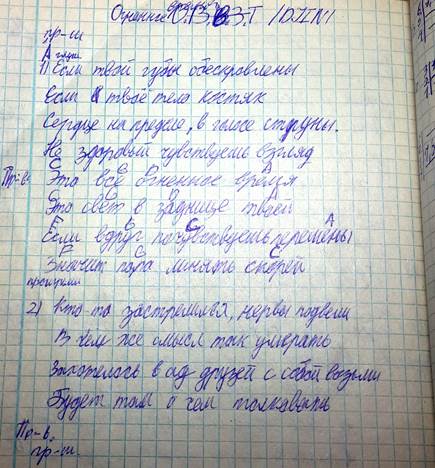 время
Огненное О.В.В.З.Т /DJINI
пр-ш
А
1) Если твои губы обескровлены
Если твоё тело костяк
Сердце на пределе, в голосе струны.
Не здоровый чувствуешь взгляд
C G D
Пр-в. Это всё огненное время
Это свет в заднице твоей
F C G A
Если вдруг почувствуешь перемены
F C G
Значит пора линять скорей
проигрыш
2) Кто-то застремался, нервы подвели
В чём же смысл так умирать
Захотелось в ад друзей с собой возьми
Будет там о чем толковать
Пр-в.
пр-ш.